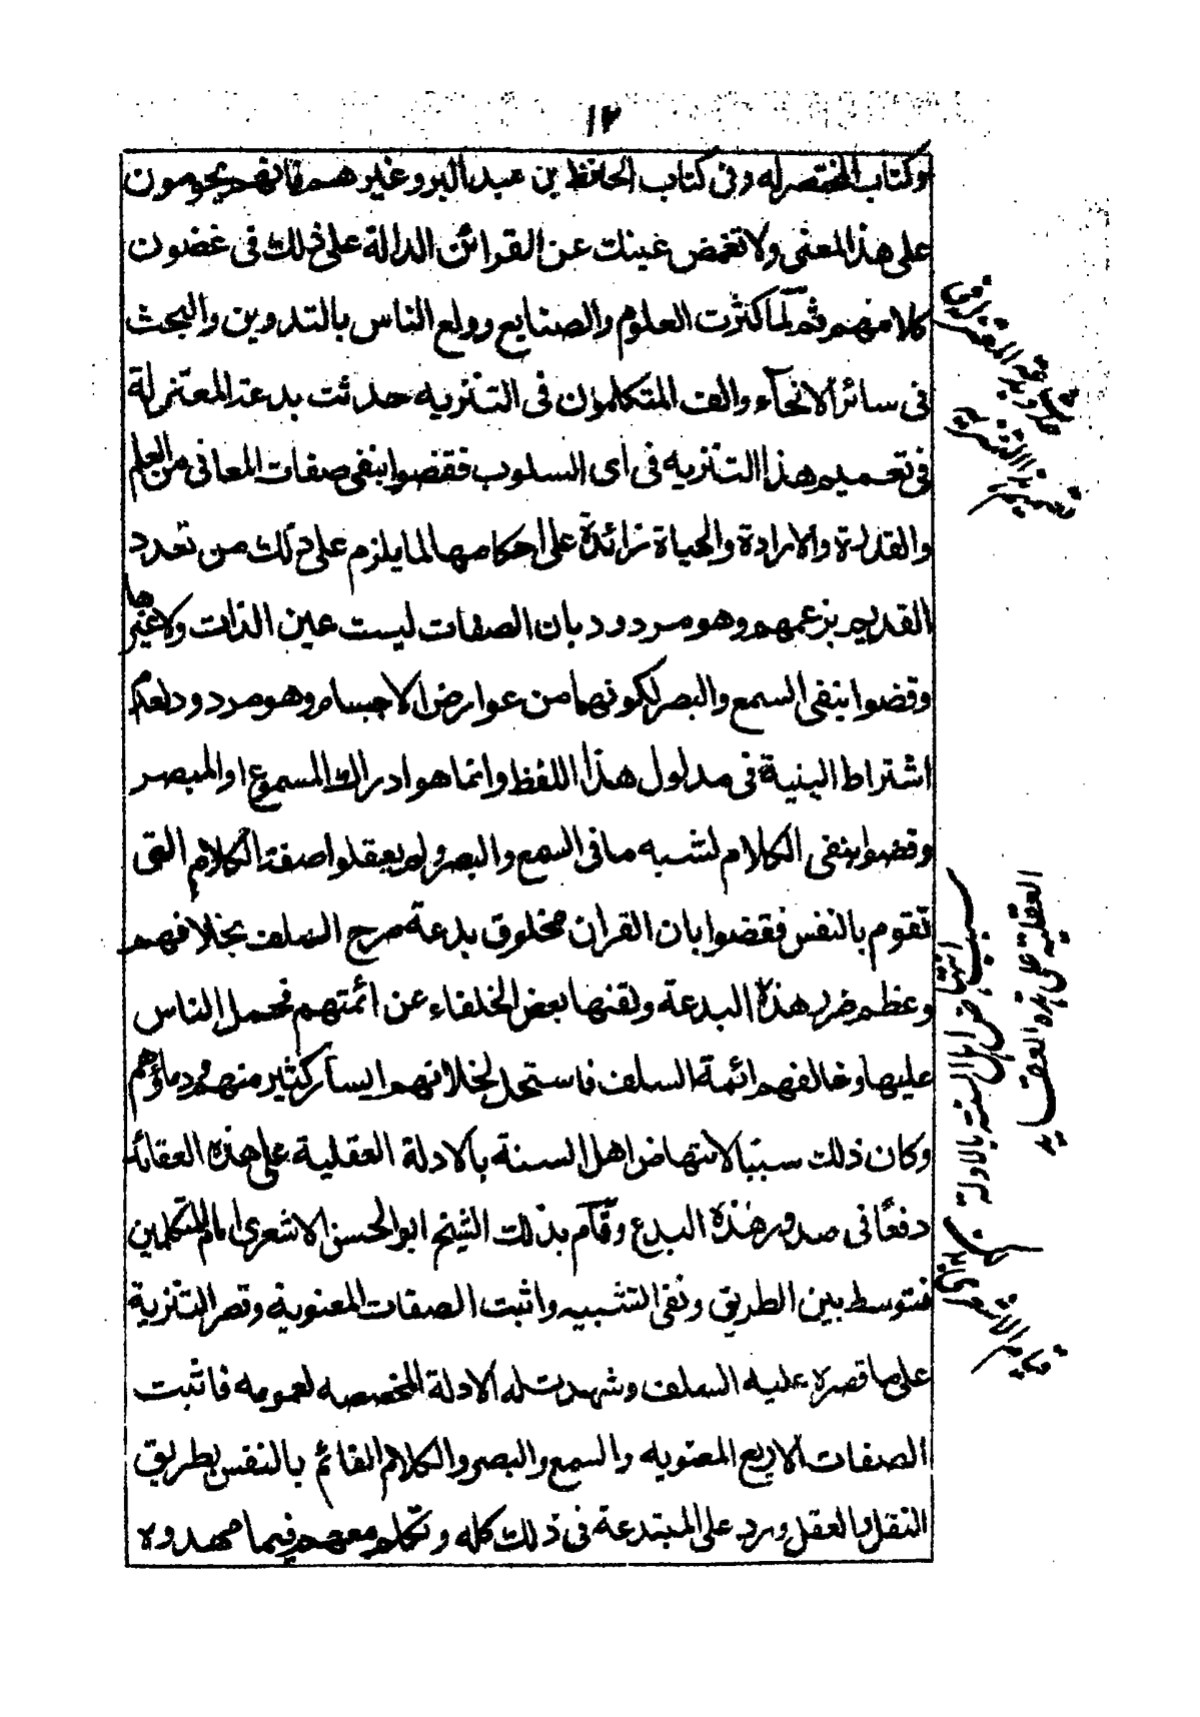 ١٢
وكتاب المختصر له وفى كتاب الحافظ بن عبد البر وغيرهم فانهم يحومون
على هذا المعنى ولا تغمض عينك عن القرائن الدالة على ذلك فى غضون
كلامهم ثم لما كثرت العلوم والصنايع وولع الناس بالتدوين والبحث
فى سائر الانحآء والف المتكلمون فى التنزيه حدثت بدعة المعتزلة
فى تعميم هذا التنزيه فى اى السلوب فقضوا بنفى صفات المعانى من العلم
والقدرة والارادة والحياة زائدة على احكامها لما يلزم على ذلك من تعدد
القديم بزعمهم وهو مردود بان الصفات ليست عين الذات ولا غيرها
وقضوا بنفى السمع والبصر لكونهما من عوارض الاجسام وهو مردود لعدم
اشتراط البنية فى مدلول هذا اللفظ وانما هو ادراك المسموع او المبصر
وقضوا بنفى الكلام لشبه ما فى السمع والبصر ولم يعقلوا صفة الكلام التى
تقوم بالنفس فقضوا بان القران مخلوق بدعة صرح السلف بخلافهم
وعظم ضرر هذه البدعة ولقنها بعض الخلفاء عن ائمتهم فحمل الناس
عليها وخالفهم ائمة السلف فاستحل لخلافهم ايسار كثير منهم ودماؤهم
وكان ذلك سببا لانتهاض اهل السنة بالادلة العقلية على هذه العقائد
دفعًا فى صدور هذه البدع وقآم بذلك الشيخ ابو الحسن الاشعرى امام المتكلمين
فتوسط بين الطريق ونفى التشبيه واثبت الصفات المعنوية وقصر التنزية
على ما قصره عليه السلف وشهدت له الادلة المخصصه لعمومه فاثبت
الصفات الاربع المعنويه والسمع والبصر والكلام القائم بالنفس بطريق
النقل والعقل ورد على المبتدعة فى ذلك كله وتكلم معهم فيما مهدوه
المعتزلة فى
تعميم هذا التنزيه
سبب انتهاض اهل السنة بالادلة
العقلية على هذه العقايد
قيام الاشعرى بهذا